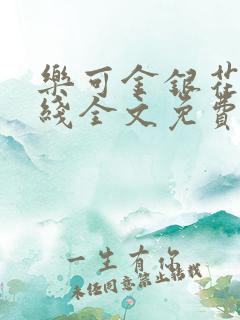 樂可金銀花
綫全文免費
一生有你
未經同意禁止轉載